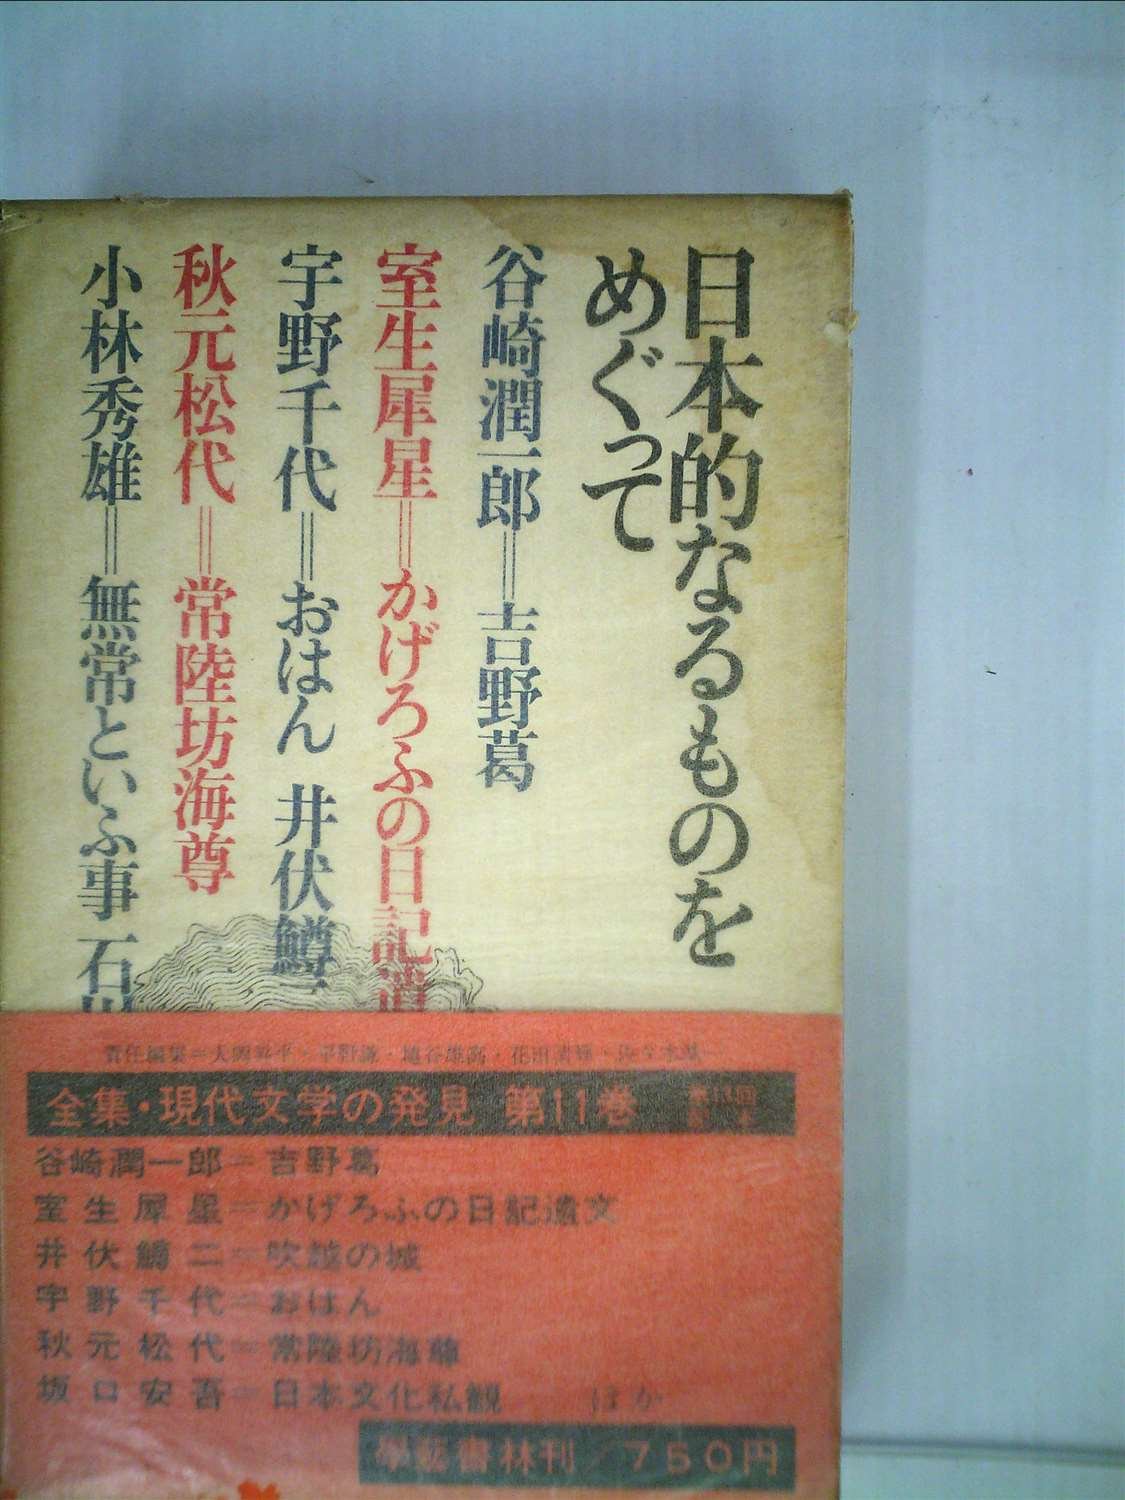 日本的なるものを
めぐって
谷崎潤一郎＝吉野葛
室生犀星＝かげろふの日記遺
宇野千代＝おはん 井伏鱒
秋元松代＝常陸坊海尊
小林秀雄＝無常といふ事 石川
責任編集＝大岡昇平・平野謙・埴谷雄高・花田清輝・佐々木基一
全集・現代文学の発見 第11巻
谷崎潤一郎＝吉野葛
室生犀星＝かげろふの日記遺文
井伏鱒二＝吹越の城
宇野千代＝おはん
秋元松代＝常陸坊海尊
坂口安吾＝日本文化私観 ほか
學藝書林刊／750円